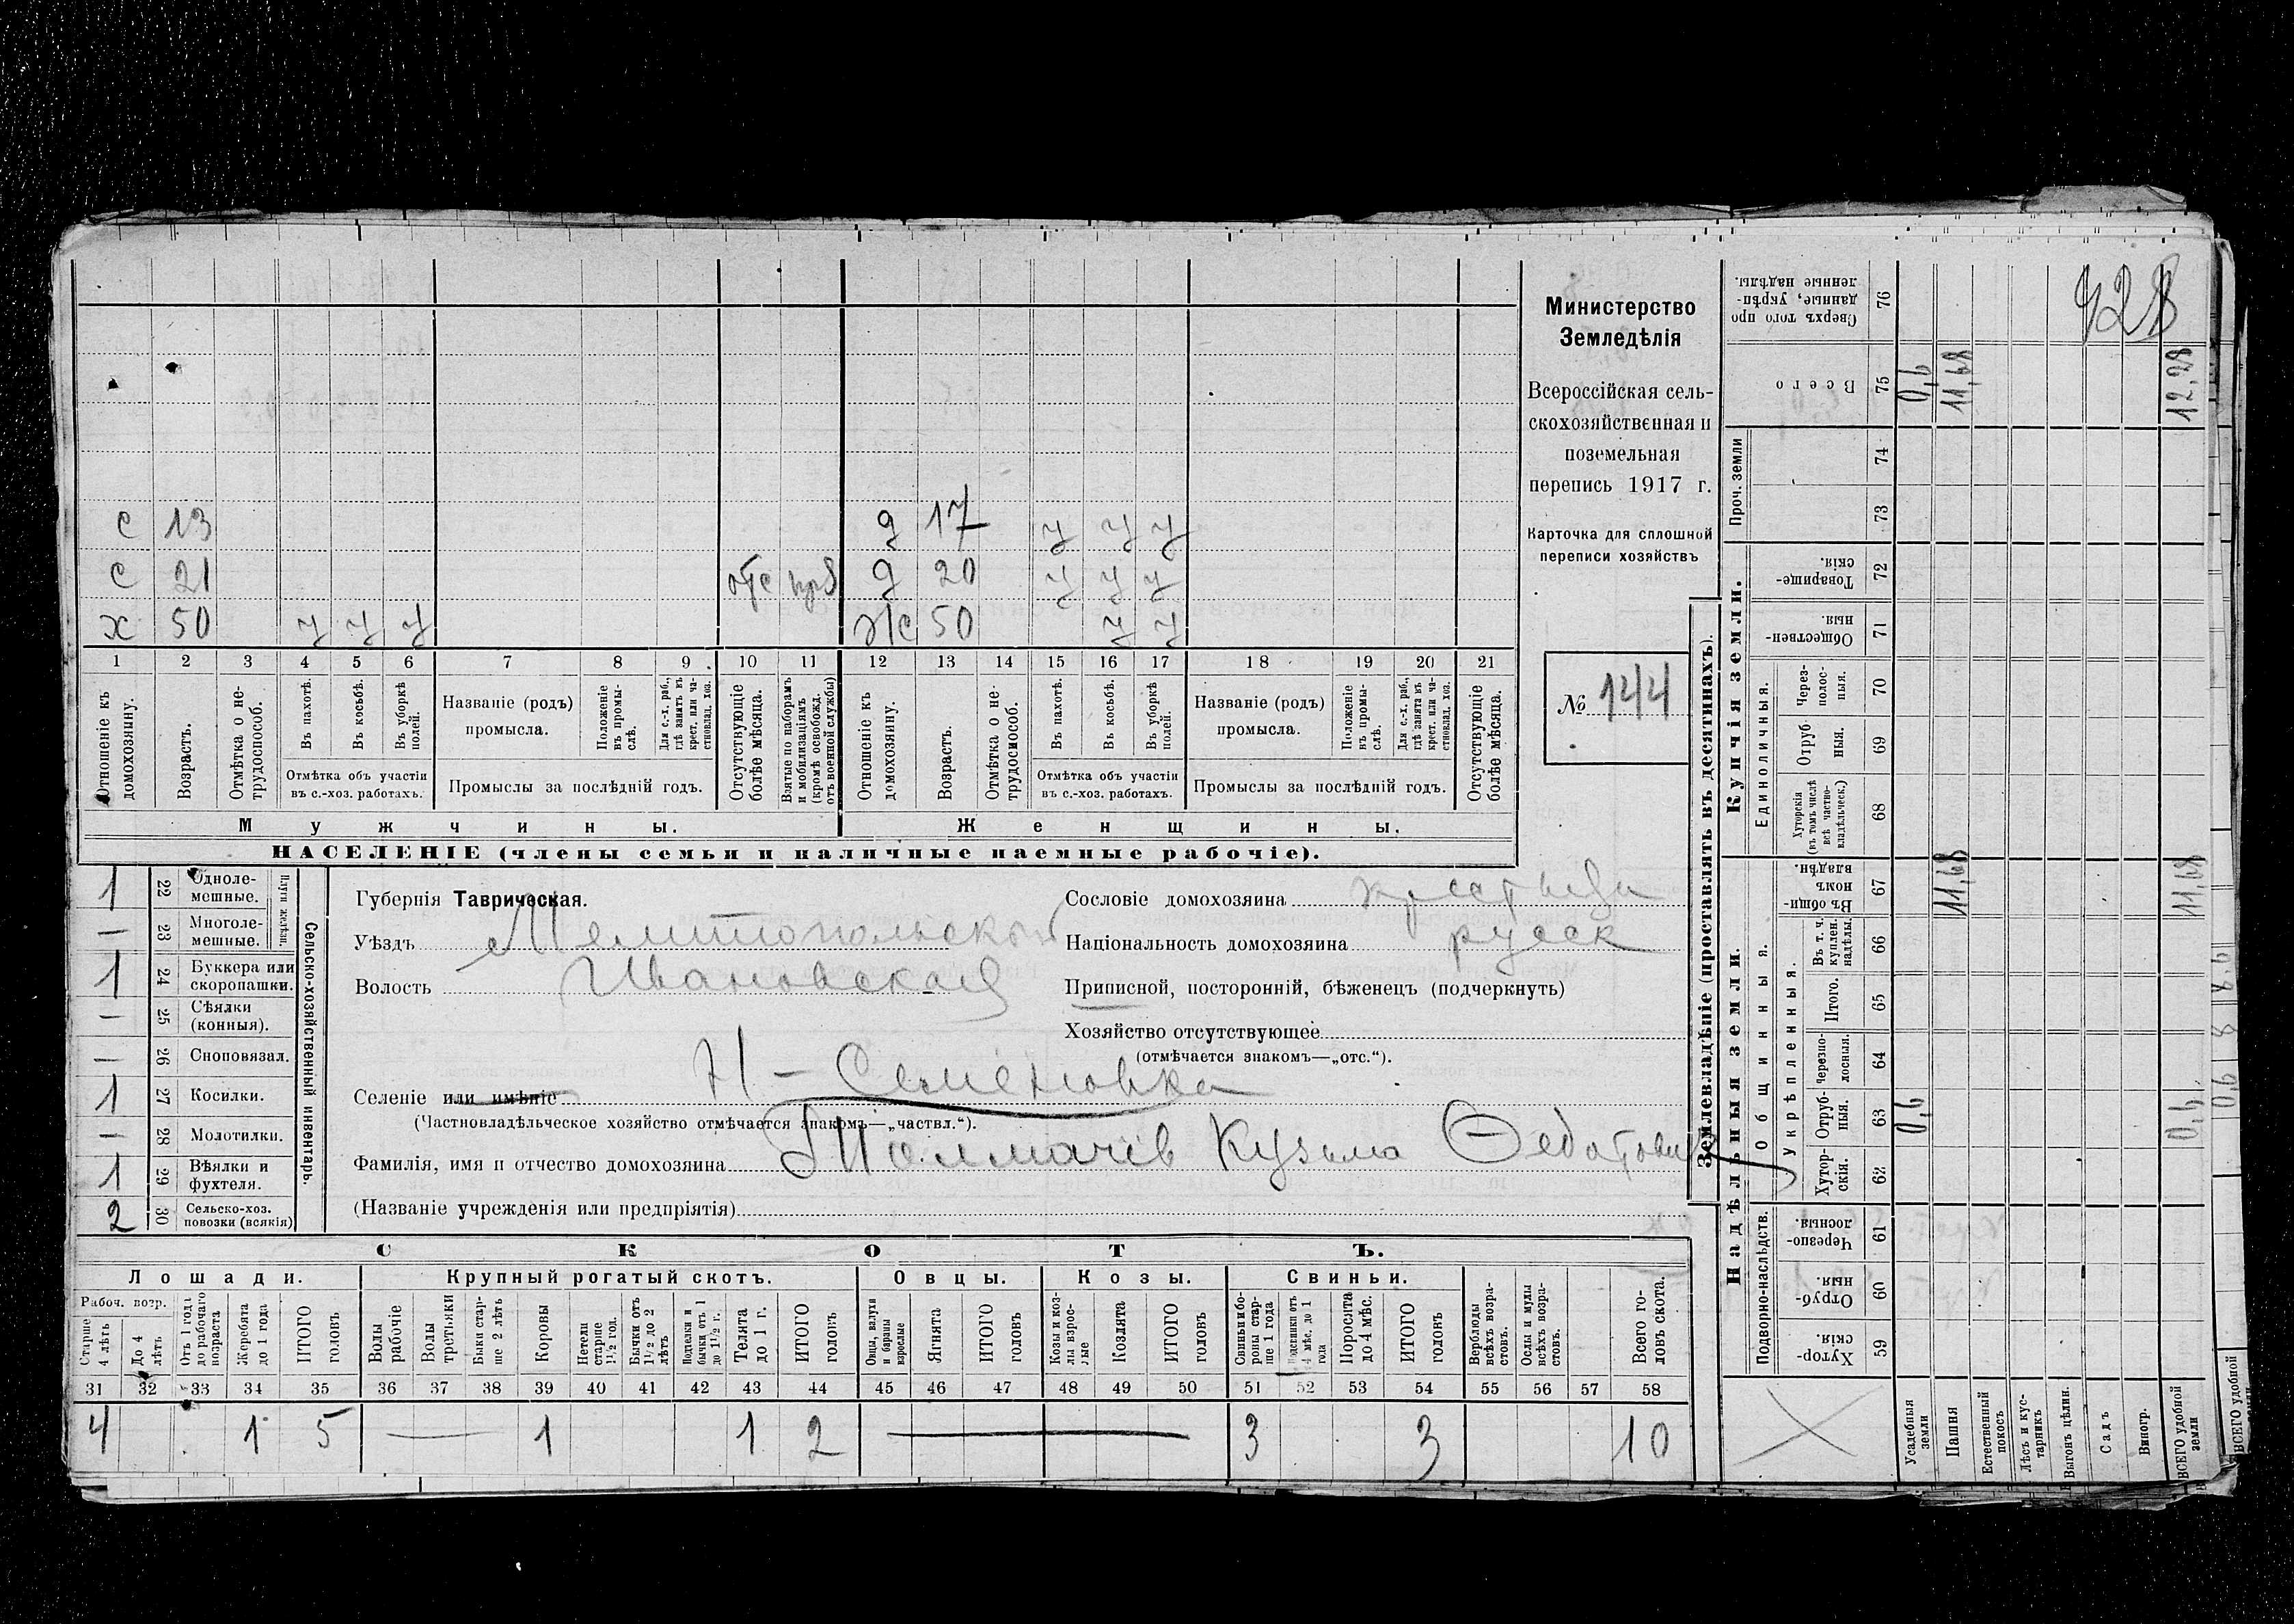 с 13 д 17 у у у
с 21 отс моб д 20 у у у
х 50 у у у ж 50 у у
1 2 3 4 5 6 7 8 9 10 11 12 13 14 15 16 17 18 19 20 21
Отношеніе къ домохозяину.
Возрастъ.
Отмѣтка о не-трудоспособ.
Въ пахотѣ.
Въ косьбѣ.
Въ уборкѣ полей.
Отмѣтка объ участіи
въ с.-хоз. работахъ.
Названіе (родъ)
промысла.
Положеніе въ промы-слѣ.
Для с.-х. раб., гдѣ занятъ въ крест. или ча-стновлад. хоз.
Промыслы за послѣдній годъ.
Отсутствующіе болѣе мѣсяца.
Взятые по наборамъ и мобилизаціямъ (кромѣ освобожд. отъ военной службы)
Отношеніе къ домохозяину.
Возрастъ.
Отмѣтка о не-трудоспособ.
Въ пахотѣ.
Въ косьбѣ.
Въ уборкѣ полей.
Отмѣтка объ участіи
въ с.-хоз. работахъ.
Названіе (родъ)
промысла.
Положеніе въ промы-слѣ.
Для с.-х. раб., гдѣ занята въ крест. или ча-стновлад. хоз.
Промыслы за послѣдній годъ.
Отсутствующіе болѣе мѣсяца.
Мужчины. Женщины.
НАСЕЛЕНІЕ (члены семьи и наличные наемные рабочіе).
Министерство
Земледѣлія
Всероссійская сель-
скохозяйственная и
поземельная
перепись 1917 г.
Карточка для сплошной
переписи хозяйствъ
№ 144
1 22 Одноле-мешные.
— 23 Многоле-мешные.
Плуги желѣзн.
1 24 Буккера или скоропашки.
— 25 Сѣялки (конныя).
— 26 Сноповязал.
1 27 Косилки.
— 28 Молотилки.
1 29 Вѣялки и фухтеля.
2 30 Сельско-хоз. повозки (всякія)
Сельско-хозяйственный инвентарь.
Губернія Таврическая.
Уѣздъ Мелитопольской
Волость Ивановская
Селеніе или имѣніе Н-Семеновка
(Частновладѣльческое хозяйство отмѣчается знакомъ—„частвл.“).
Фамилія, имя и отчество домохозяина Толмачів Кузьма Федотович
(Названіе учрежденія или предпріятія)
Сословіе домохозяина
Національность домохозяина русск
Приписной, посторонній, бѣженецъ (подчеркнуть)
Хозяйство отсутствующее
(отмѣчается знакомъ—„отс.“).
СКОТЪ.
Лошади. Крупный рогатый скотъ. Овцы. Козы. Свиньи.
Рабоч. возр.
Старше 4 лѣтъ
До 4 лѣтъ
Отъ 1 года до рабочаго возраста
Жеребята до 1 года
ИТОГО головъ
Волы рабочіе
Волы третьяки
Быки стар-ше 2 лѣтъ
Коровы
Нетели старше 1 1/2 год.
Бычки отъ 1 1/2 до 2 лѣтъ
Подтелки и бычки отъ 1 до 1 1/2 г.
Телята до 1 г.
ИТОГО головъ
Овцы, валухи и бараны взрослые
Ягнята
ИТОГО головъ
Козы и коз-лы взрос-лые
Козлята
ИТОГО головъ
Свиньи и бо-ровы стар-ше 1 года
Подсвинки отъ 4 мѣс. до 1 года
Поросята до 4 мѣс.
ИТОГО головъ
Верблюды всѣхъ возра-стовъ.
Ослы и мулы всѣхъ возра-стовъ.
Всего го-ловъ скота.
31 32 33 34 35 36 37 38 39 40 41 42 43 44 45 46 47 48 49 50 51 52 53 54 55 56 57 58
4 1 5 — 1 1 2 — 3 3 10
Землевладѣніе (проставлять въ десятинахъ).
Надѣльныя земли. Купчія земли.
Подворно-наслѣдств. Общинныя. Укрѣпленныя. Единоличныя. Проч. земли
Хутор-скія. 59
Отруб-ныя. 60
Черезпо-лосныя. 61
Хутор-скія. 62
Отруб-ныя. 63
Черезпо-лосныя. 64
Итого. 65
Въ т. ч. куплен. надѣлы. 66
Въ общи-номъ владѣн. 67
Хуторскія (въ томъ числѣ всѣ частно-владѣльческ.) 68
Отруб-ныя. 69
Через-полос-ныя. 70
Обществен-ныя. 71
Товарище-скія. 72
73
74
Всего 75
Сверхъ того про-данные, укрѣп-ленные надѣлы. 76
428
Усадебныя земли 0,6 0,6
Пашня 11,68 11,68
Естественный покосъ
Лѣсъ и кус-тарникъ
Выгонъ цѣлин.
Садъ
Виногр.
ВСЕГО удобной земли 0,6 11,68 12,28
ВСЕГО удобной